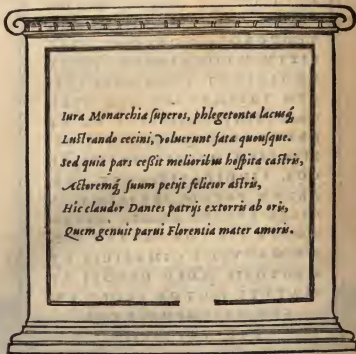 Iura Monarchiæ ſuperos, phlegetonta lacuſq́;
Luſtrando cecini, voluerunt fata quouſque.
Sed quia pars ceßit melioribus hoſpita caſtris,
Actoremq́; ſuum petijt felicior aſtris,
Hic claudor Dantes patrijs extorris ab oris,
Quem genuit parui Florentia mater amoris.